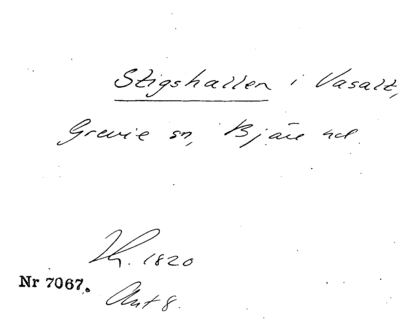 Stigshallen i Vasalt,
Grevie sn, Bjäre hd.
1820
Nr 7067.
Ant 8.